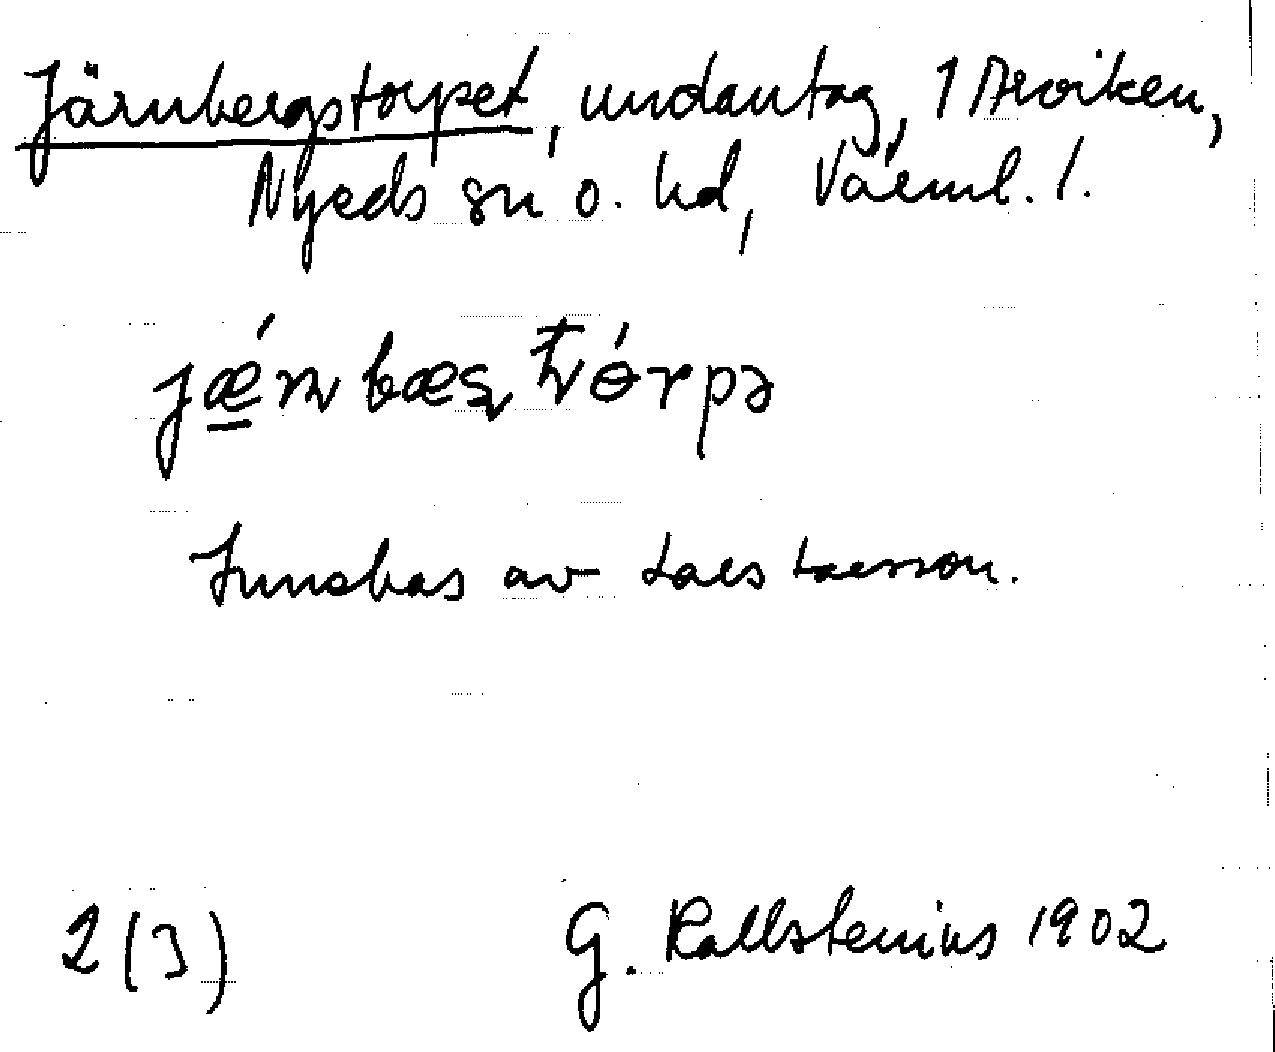 Järnbergstorpet, undantag, 1 Arviken,
Nyeds sn o. hd, Värml. l.
jǽnbæs tɵ́rpə
Innehas av Lars Larsson.
2(3) G. Kallstenius 1902